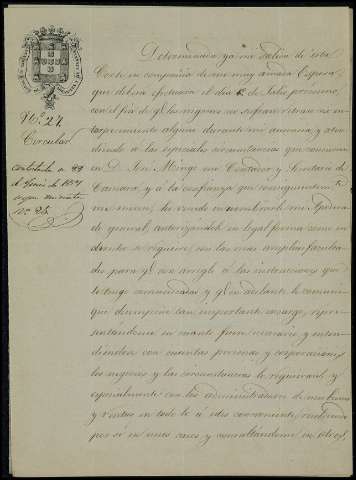 Nº 24
Circular
contestada en 22
de Junio de 1857
segun minuta
nº 25
Determinada ya mi salida de esta
Corte en compañia de mi muy amada Esposa,
que deberá efectuarse el dia 2 de Julio procsimo,
con el fin de qe los negocios no sufran retraso ni en-
torpecimiento alguno durante mi ausencia, y aten-
diendo á las especiales circunstancias que concurren
en D. José mi Contador y Secretario de
Camara, y á la confianza que
me merece, he venido en nombrarle mi Apodera-
do general, autorizandole en legal forma como en
derecho se requiere, con las mas amplias faculta-
des para qe con arreglo á las instrucciones que
le tengo comunicadas y qe en adelante le comuni-
que desempeñe tan importante encargo, repre-
sentandome en cuanto fuere necesario y enten-
diendose con cuantas personas y corporaciones
los negocios y las circunstancias lo requieran, y
especialmente con los administradores de mis bienes
y rentas en todo lo á ellos concerniente, resolviendo
por sí en unos casos y consultandome en otros,